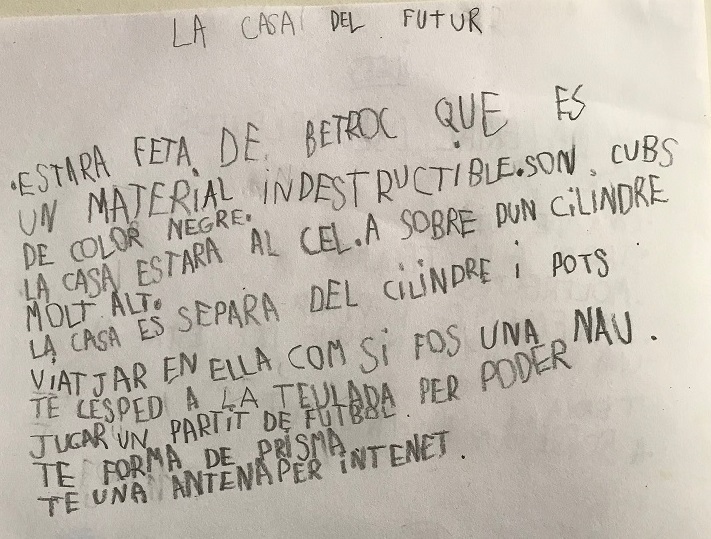 LA CASA DEL FUTUR
.ESTARA FETA DE BETROC QUE ES
UN MATERIAL INDESTRUCTIBLE.SON CUBS
DE COLOR NEGRE.
LA CASA ESTARA AL CEL.A SOBRE DUN CILINDRE
MOLT ALT.
LA CASA ES SEPARA DEL CILINDRE I POTS
VIATJAR EN ELLA COM SI FOS UNA NAU.
TE CESPED A LA TEULADA PER PODER
JUGAR UN PARTIT DE FUTBOL.
TE FORMA DE PRISMA
TE UNA ANTENA PER INTENET.